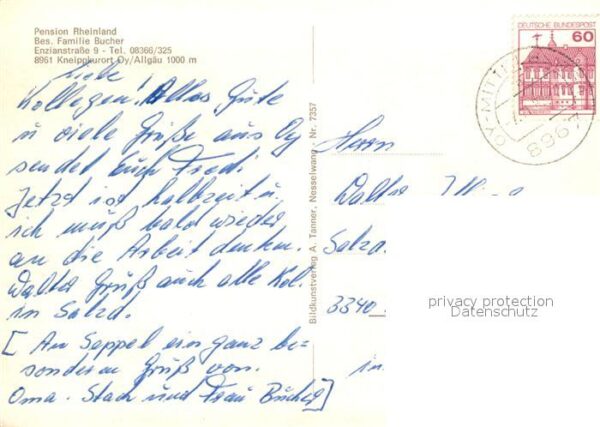 Pension Rheinland
Bes. Familie Bucher
Enzianstraße 9 - Tel. 08366/325
8961 Kneippkurort Oy/Allgäu 1000 m
Liebe
Kollegen! Alles Gute
u viele Grüße aus Oy
sendet Euch Fredi.
Jetzt ist halbzeit u.
ich muß bald wieder
an die Arbeit denken.
Walter Gruß auch alle Kol.
in Salzd.
[An Seppel ein ganz be-
sonderen Gruß von.
Oma. Stach und Frau Bucher]
Bildkunstverlag A. Tanner, Nesselwang - Nr. 7357
DEUTSCHE BUNDESPOST
60
OY-MITT
8967
Herrn
Walter
Salzd.
3340
in
privacy protection
Datenschutz